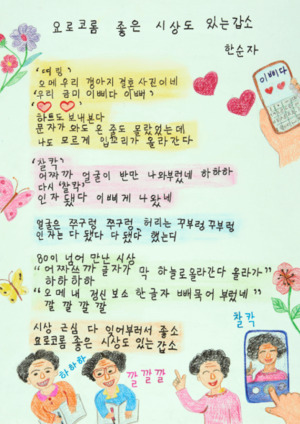 요로코롬 좋은 시상도 있는갑소
한순자
'띠링'
오메 우리 갱아지 결혼 사진이네
"우리 금미 이삐다 이뻐"
하트도 보내본다
문자가 와도 온 줄도 몰랐었는데
나도 모르게 입꼬리가 올라간다
'찰칵'
어쩌까 얼굴이 반만 나와부렀네 하하하
다시 '찰칵'
인자 됐다 이삐게 나왔네
얼굴은 쭈구렁 쭈구렁, 허리는 꾸부렁 꾸부렁
인자는 다 됐다 다 됐다 했는디
80이 넘어 만난 시상
"어쩌쓰까 글자가 막 하늘로 올라간다 올라가"
하하하하
"오메 내 정신 보소 한글자 빼묵어 부렀네"
깔 깔 깔 깔
시상 근심 다 잊어부러서 좋소
요로코롬 좋은 시상도 있는갑소
이삐다
찰칵
하하하
깔 깔 깔